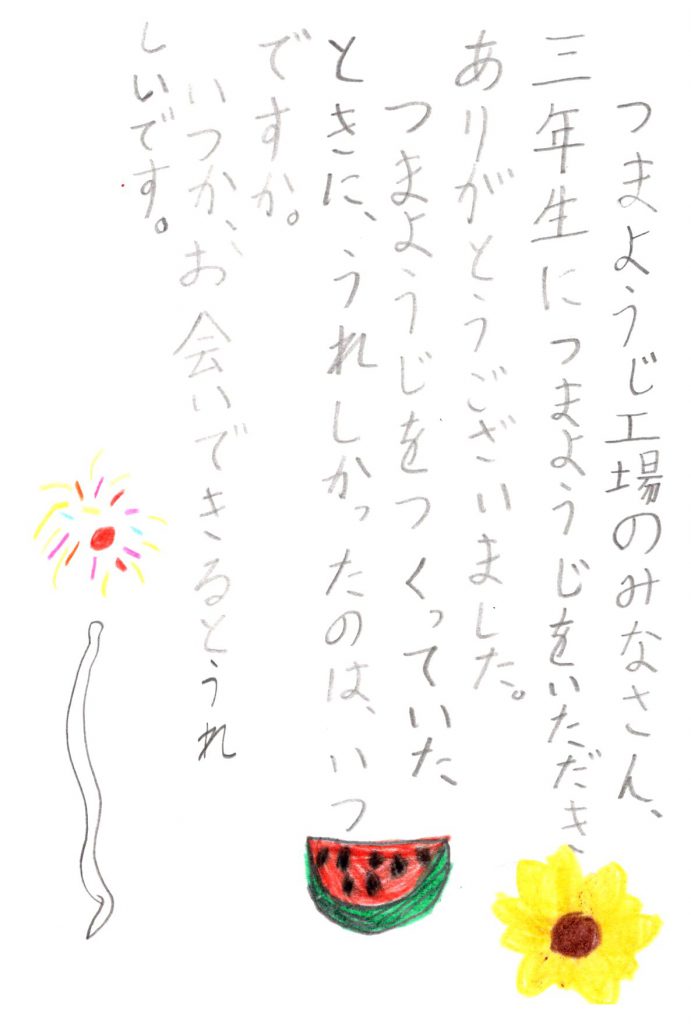 つまようじ工場のみなさん、
三年生につまようじをいただき、
ありがとうございました。
つまようじをつくっていた
ときに、うれしかったのは、いつ
ですか。
いつか、お会いできるとうれ
しいです。